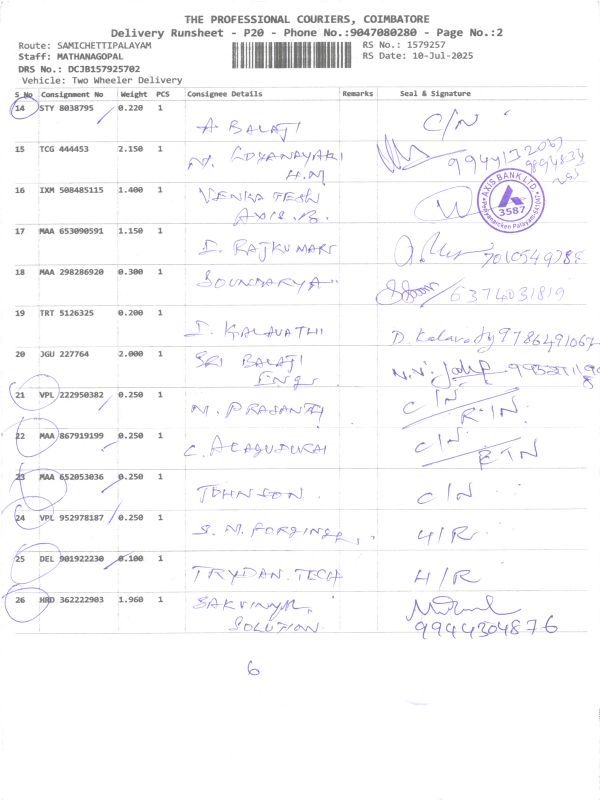 THE PROFESSIONAL COURIERS, COIMBATORE
Delivery Runsheet - P20 - Phone No.:9047080280 - Page No.:2
Route: SAMICHETTIPALAYAM RS No.: 1579257
Staff: MATHANAGOPAL RS Date: 10-Jul-2025
DRS No.: DCJB157925702
Vehicle: Two Wheeler Delivery
S No Consignment No Weight PCS Consignee Details Remarks Seal & Signature
14 STY 8038795 0.220 1
A BALAJI C/N
15 TCG 444453 2.150 1
16 IXM 508485115 1.400 1
VENKATESH
AXIS. B.
AXIS BANK LTD
3587
17 MAA 653090591 1.150 1
I. RAJKUMAR
18 MAA 298286920 0.300 1
SOUNDARYA 6374031819
19 TRT 5126325 0.200 1
I. KALAVATHI D. Kalavathy 9786491067
20 JGU 227764 2.000 1
SRI BALAJI
ENGG
21 VPL 222950382 0.250 1
M. PRASANTH C/N
R-IN.
22 MAA 867919199 0.250 1
C. ALAGUDURAI C/N
RTN
23 MAA 652053036 0.250 1
JOHNSON C/N
24 VPL 952978187 0.250 1
S. M. FORGINGS, H/R
25 DEL 901922230 0.100 1
TRYDAN. TECH H/R
26 HRD 362222903 1.960 1
SOLUTION 9944304876
6